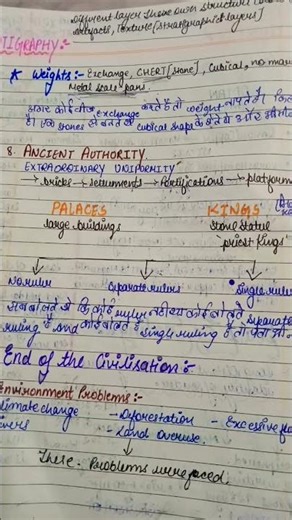 Different layer
artifacts, texture [stratigraphic layers]
IIGRAPHY:-
* Weights:- Exchange, CHERT [stone], Cubical, no mar
Metal scale pans.
अगर कोई चीज exchange करते हैं तो weight
है। एक stones से बनते cubical shape के होते थे और
8. ANCIENT AUTHORITY
EXTRAORDINARY UNIFORMITY
→ bricks → settlements → Fortifications → platform
PALACES KINGS
large buildings stone statue
"priest Kings"
No ruler Separate rulers Single ruler
ruler नहीं था कोई बोलते separate
ruling है and कोई बोलते single ruling है
End of the Civilisation:-
Environment Problems:-
climate change - Deforestation - Excessive
- Land overuse.
These Problems were faced.